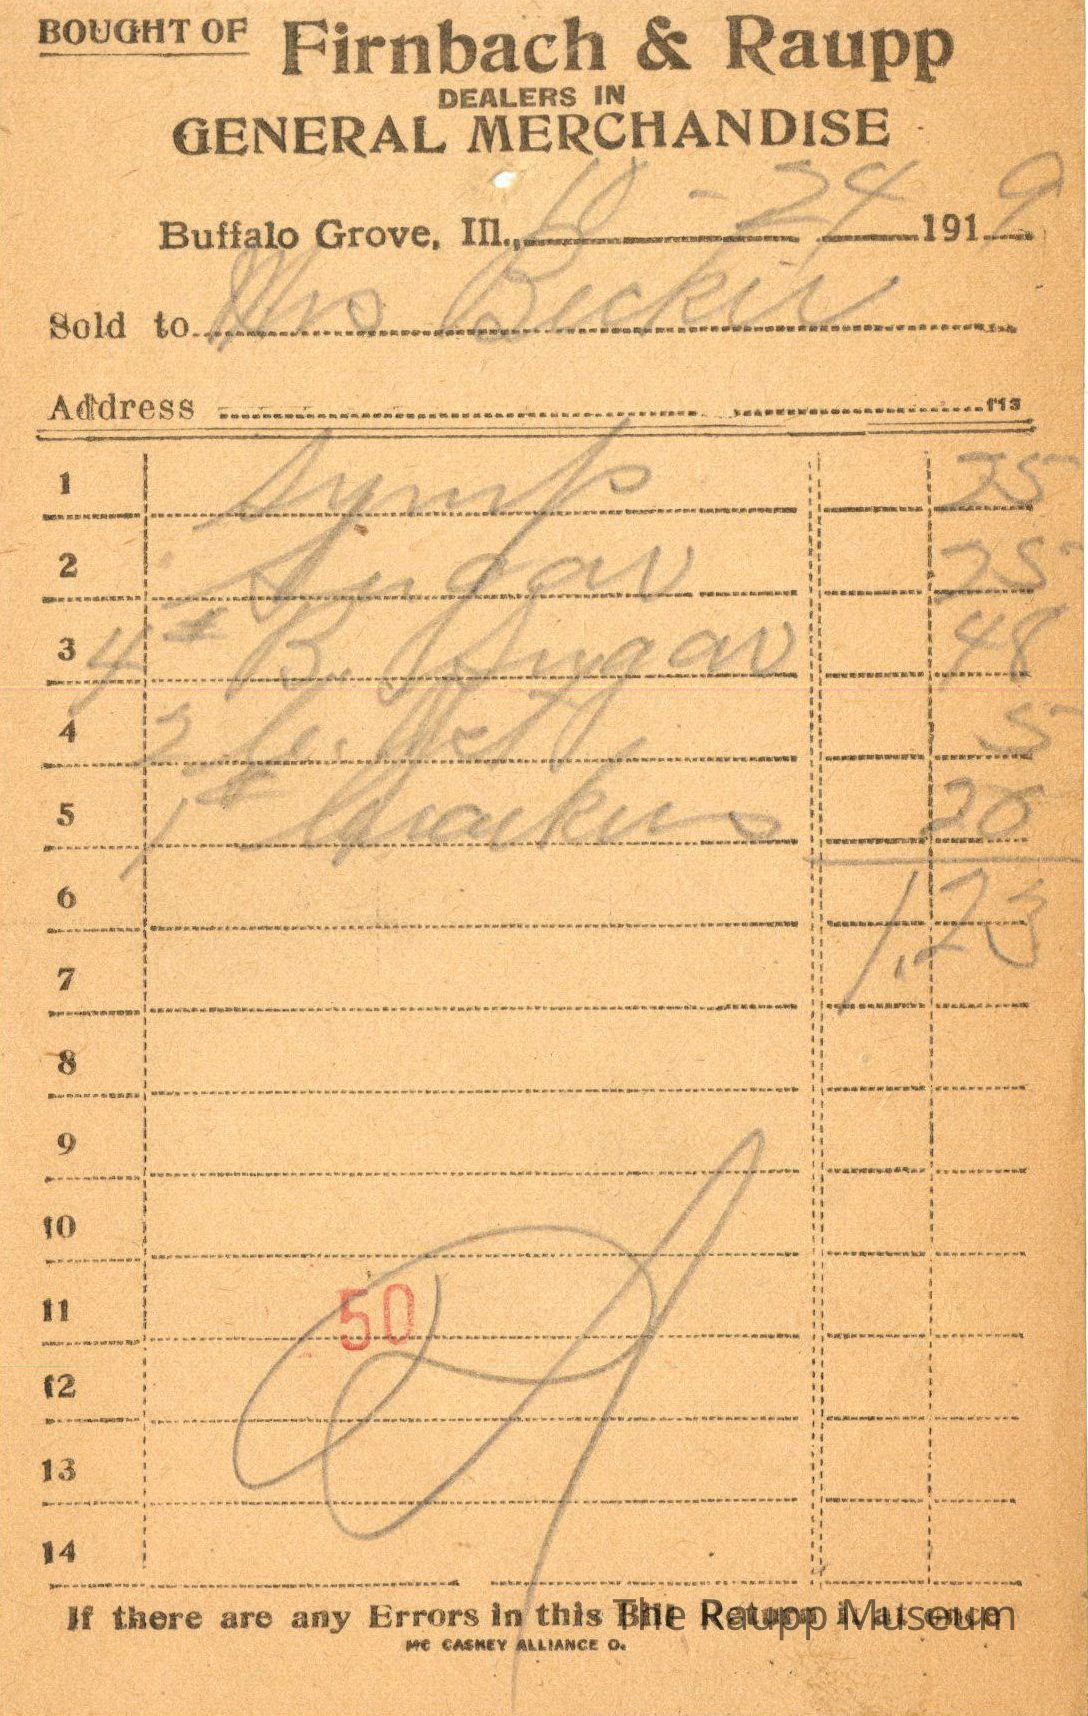 BOUGHT OF Firnbach & Raupp
DEALERS IN
GENERAL MERCHANDISE
Buffalo Grove, Ill., 10 - 24 1919
Sold to Mrs Becker
Address f13
1 Syrup 25
2 Sugar 25
3 4# B. Sugar 48
4 2 5
5 1# Crackers 20
6 1.23
7
8
9
10
11 50
12
13
14
If there are any Errors in this Bill Return it at once
The Raupp Museum
MC CASKEY ALLIANCE O.